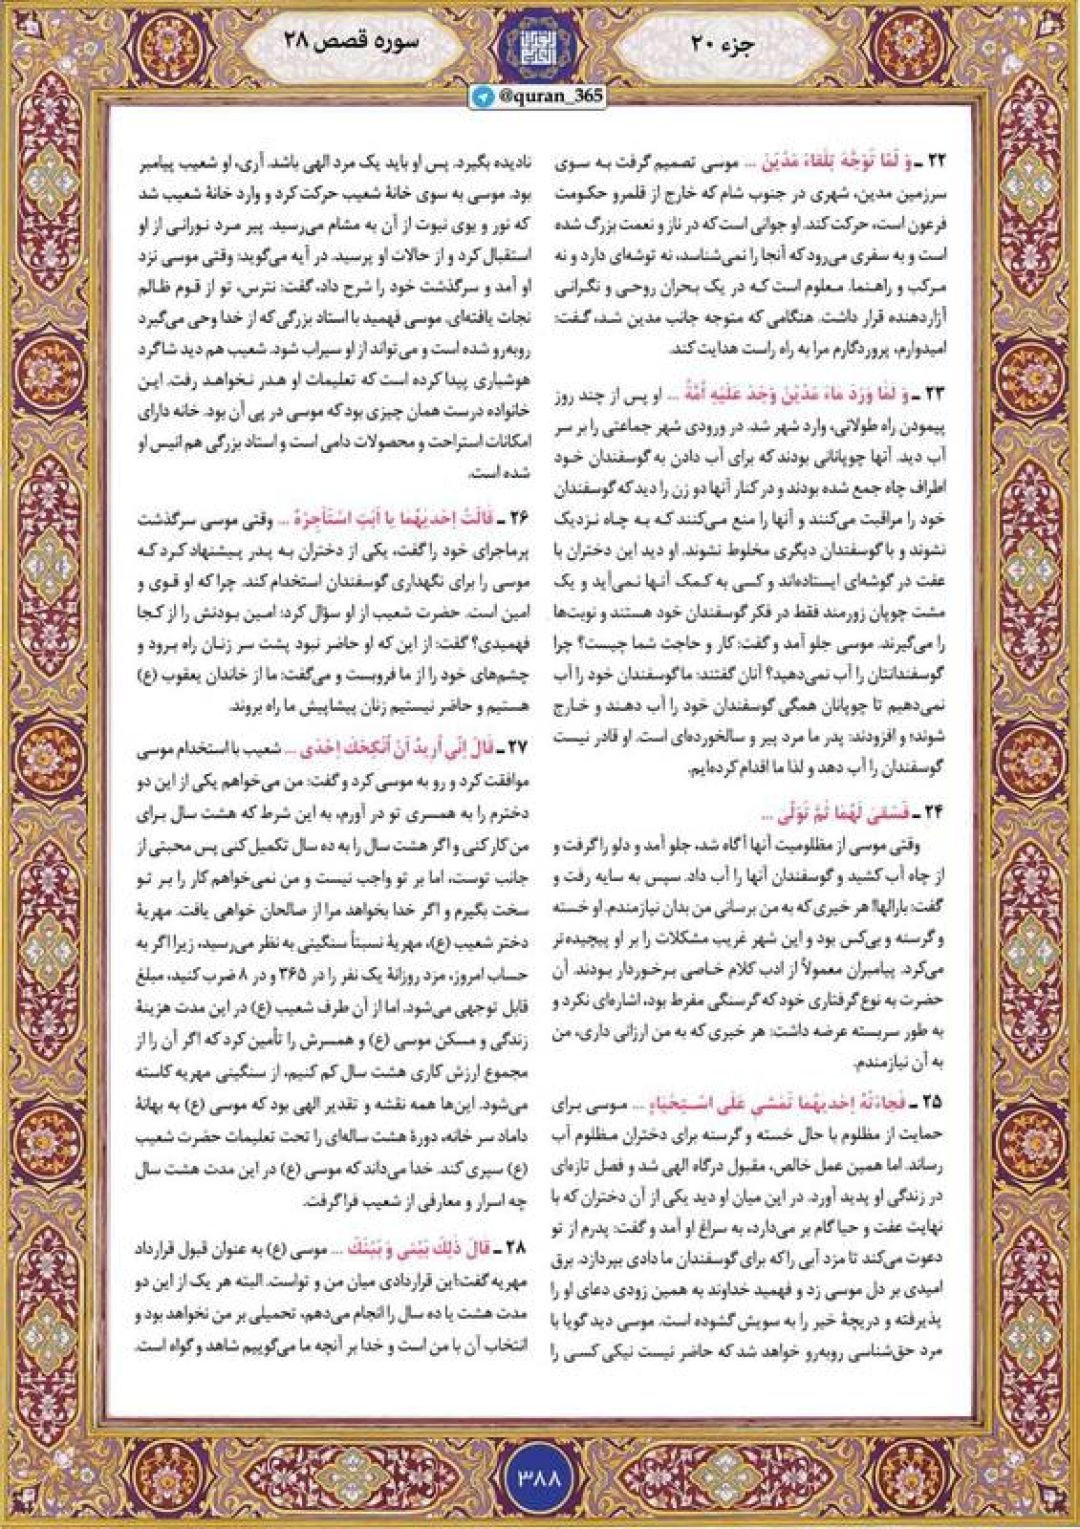 جزء ۲۰
سوره قصص ۲۸
@quran_365
۲۲ ـ وَ لَمّا تَوَجَّهَ تِلْقاءَ مَدْیَنَ ... موسی تصمیم گرفت به سوی
سرزمین مدین، شهری در جنوب شام که خارج از قلمرو حکومت
فرعون است، حرکت کند. او جوانی است که در ناز و نعمت بزرگ شده
است و به سفری می‌رود که آنجا را نمی‌شناسد، نه توشه‌ای دارد و نه
مرکب و راهنما. معلوم است که در یک بحران روحی و نگرانی
آزاردهنده قرار داشت. هنگامی که متوجه جانب مدین شد، گفت:
امیدوارم، پروردگارم مرا به راه راست هدایت کند.
۲۳ ـ وَ لَمّا وَرَدَ ماءَ مَدْیَنَ وَجَدَ عَلَیْهِ اُمَّةً ... او پس از چند روز
پیمودن راه طولانی، وارد شهر شد. در ورودی شهر جماعتی را بر سر
آب دید. آنها چوپانانی بودند که برای آب دادن به گوسفندان خود
اطراف چاه جمع شده بودند و در کنار آنها دو زن را دید که گوسفندان
خود را مراقبت می‌کنند و آنها را منع می‌کنند که به چاه نزدیک
نشوند و با گوسفندان دیگری مخلوط نشوند. او دید این دختران با
عفت در گوشه‌ای ایستاده‌اند و کسی به کمک آنها نمی‌آید و یک
مشت چوپان زورمند فقط در فکر گوسفندان خود هستند و نوبت‌ها
را می‌گیرند. موسی جلو آمد و گفت: کار و حاجت شما چیست؟ چرا
گوسفندانتان را آب نمی‌دهید؟ آنان گفتند: ما گوسفندان خود را آب
نمی‌دهیم تا چوپانان همگی گوسفندان خود را آب دهند و خارج
شوند؛ و افزودند: پدر ما مرد پیر و سالخورده‌ای است. او قادر نیست
گوسفندان را آب دهد و لذا ما اقدام کرده‌ایم.
۲۴ ـ فَسَقیٰ لَهُما ثُمَّ تَوَلّیٰ ...
وقتی موسی از مظلومیت آنها آگاه شد، جلو آمد و دلو را گرفت و
از چاه آب کشید و گوسفندان آنها را آب داد. سپس به سایه رفت و
گفت: بارالها! هر خیری که به من برسانی من بدان نیازمندم. او خسته
و گرسنه و بی‌کس بود و این شهر غریب مشکلات را بر او پیچیده‌تر
می‌کرد. پیامبران معمولاً از ادب کلام خاصی برخوردار بودند. آن
حضرت به نوع گرفتاری خود که گرسنگی مفرط بود، اشاره‌ای نکرد و
به طور سربسته عرضه داشت: هر خیری که به من ارزانی داری، من
به آن نیازمندم.
۲۵ ـ فَجاءَتْهُ اِحْدیهُما تَمْشی عَلَی اسْتِحْیاءٍ ... موسی برای
حمایت از مظلوم با حال خسته و گرسنه برای دختران مظلوم آب
رساند. اما همین عمل خالص، مقبول درگاه الهی شد و فصل تازه‌ای
در زندگی او پدید آورد. در این میان او دید یکی از آن دختران که با
نهایت عفت و حیا گام بر می‌دارد، به سراغ او آمد و گفت: پدرم از تو
دعوت می‌کند تا مزد آبی را که برای گوسفندان ما دادی بپردازد. برق
امیدی بر دل موسی زد و فهمید خداوند به همین زودی دعای او را
پذیرفته و دریچهٔ خیر را به سویش گشوده است. موسی دید گویا با
مرد حق‌شناسی روبه‌رو خواهد شد که حاضر نیست نیکی کسی را
نادیده بگیرد. پس او باید یک مرد الهی باشد. آری، او شعیب پیامبر
بود. موسی به سوی خانهٔ شعیب حرکت کرد و وارد خانهٔ شعیب شد
که نور و بوی نبوت از آن به مشام می‌رسید. پیر مرد نورانی از او
استقبال کرد و از حالات او پرسید. در آیه می‌گوید: وقتی موسی نزد
او آمد و سرگذشت خود را شرح داد، گفت: نترس، تو از قوم ظالم
نجات یافته‌ای. موسی فهمید با استاد بزرگی که از خدا وحی می‌گیرد
روبه‌رو شده است و می‌تواند از او سیراب شود. شعیب هم دید شاگرد
هوشیاری پیدا کرده است که تعلیمات او هدر نخواهد رفت. این
خانواده درست همان چیزی بود که موسی در پی آن بود. خانه دارای
امکانات استراحت و محصولات دامی است و استاد بزرگی هم انیس او
شده است.
۲۶ ـ قالَتْ اِحْدیهُما یا اَبَتِ اسْتَأْجِرْهُ ... وقتی موسی سرگذشت
پرماجرای خود را گفت، یکی از دختران به پدر پیشنهاد کرد که
موسی را برای نگهداری گوسفندان استخدام کند. چرا که او قوی و
امین است. حضرت شعیب از او سؤال کرد: امین بودنش را از کجا
فهمیدی؟ گفت: از این که او حاضر نبود پشت سر زنان راه برود و
چشم‌های خود را از ما فروبست و می‌گفت: ما از خاندان یعقوب (ع)
هستیم و حاضر نیستیم زنان پیشاپیش ما راه بروند.
۲۷ ـ قالَ اِنّی اُریدُ اَنْ اُنْکِحَکَ اِحْدَی ... شعیب با استخدام موسی
موافقت کرد و رو به موسی کرد و گفت: من می‌خواهم یکی از این دو
دخترم را به همسری تو در آورم، به این شرط که هشت سال برای
من کار کنی و اگر هشت سال را به ده سال تکمیل کنی پس محبتی از
جانب توست، اما بر تو واجب نیست و من نمی‌خواهم کار را بر تو
سخت بگیرم و اگر خدا بخواهد مرا از صالحان خواهی یافت. مهریهٔ
دختر شعیب (ع)، مهریهٔ نسبتاً سنگینی به نظر می‌رسید، زیرا اگر به
حساب امروز، مزد روزانهٔ یک نفر را در ۳۶۵ و در ۸ ضرب کنید، مبلغ
قابل توجهی می‌شود. اما از آن طرف شعیب (ع) در این مدت هزینهٔ
زندگی و مسکن موسی (ع) و همسرش را تأمین کرد که اگر آن را از
مجموع ارزش کاری هشت سال کم کنیم، از سنگینی مهریه کاسته
می‌شود. این‌ها همه نقشه و تقدیر الهی بود که موسی (ع) به بهانهٔ
داماد سر خانه، دورهٔ هشت ساله‌ای را تحت تعلیمات حضرت شعیب
(ع) سپری کند. خدا می‌داند که موسی (ع) در این مدت هشت سال
چه اسرار و معارفی از شعیب فرا گرفت.
۲۸ ـ قالَ ذٰلِکَ بَیْنی وَ بَیْنَکَ ... موسی (ع) به عنوان قبول قرارداد
مهریه گفت:این قراردادی میان من و تواست. البته هر یک از این دو
مدت هشت یا ده سال را انجام می‌دهم، تحمیلی بر من نخواهد بود و
انتخاب آن با من است و خدا بر آنچه ما می‌گوییم شاهد و گواه است.
۳۸۸